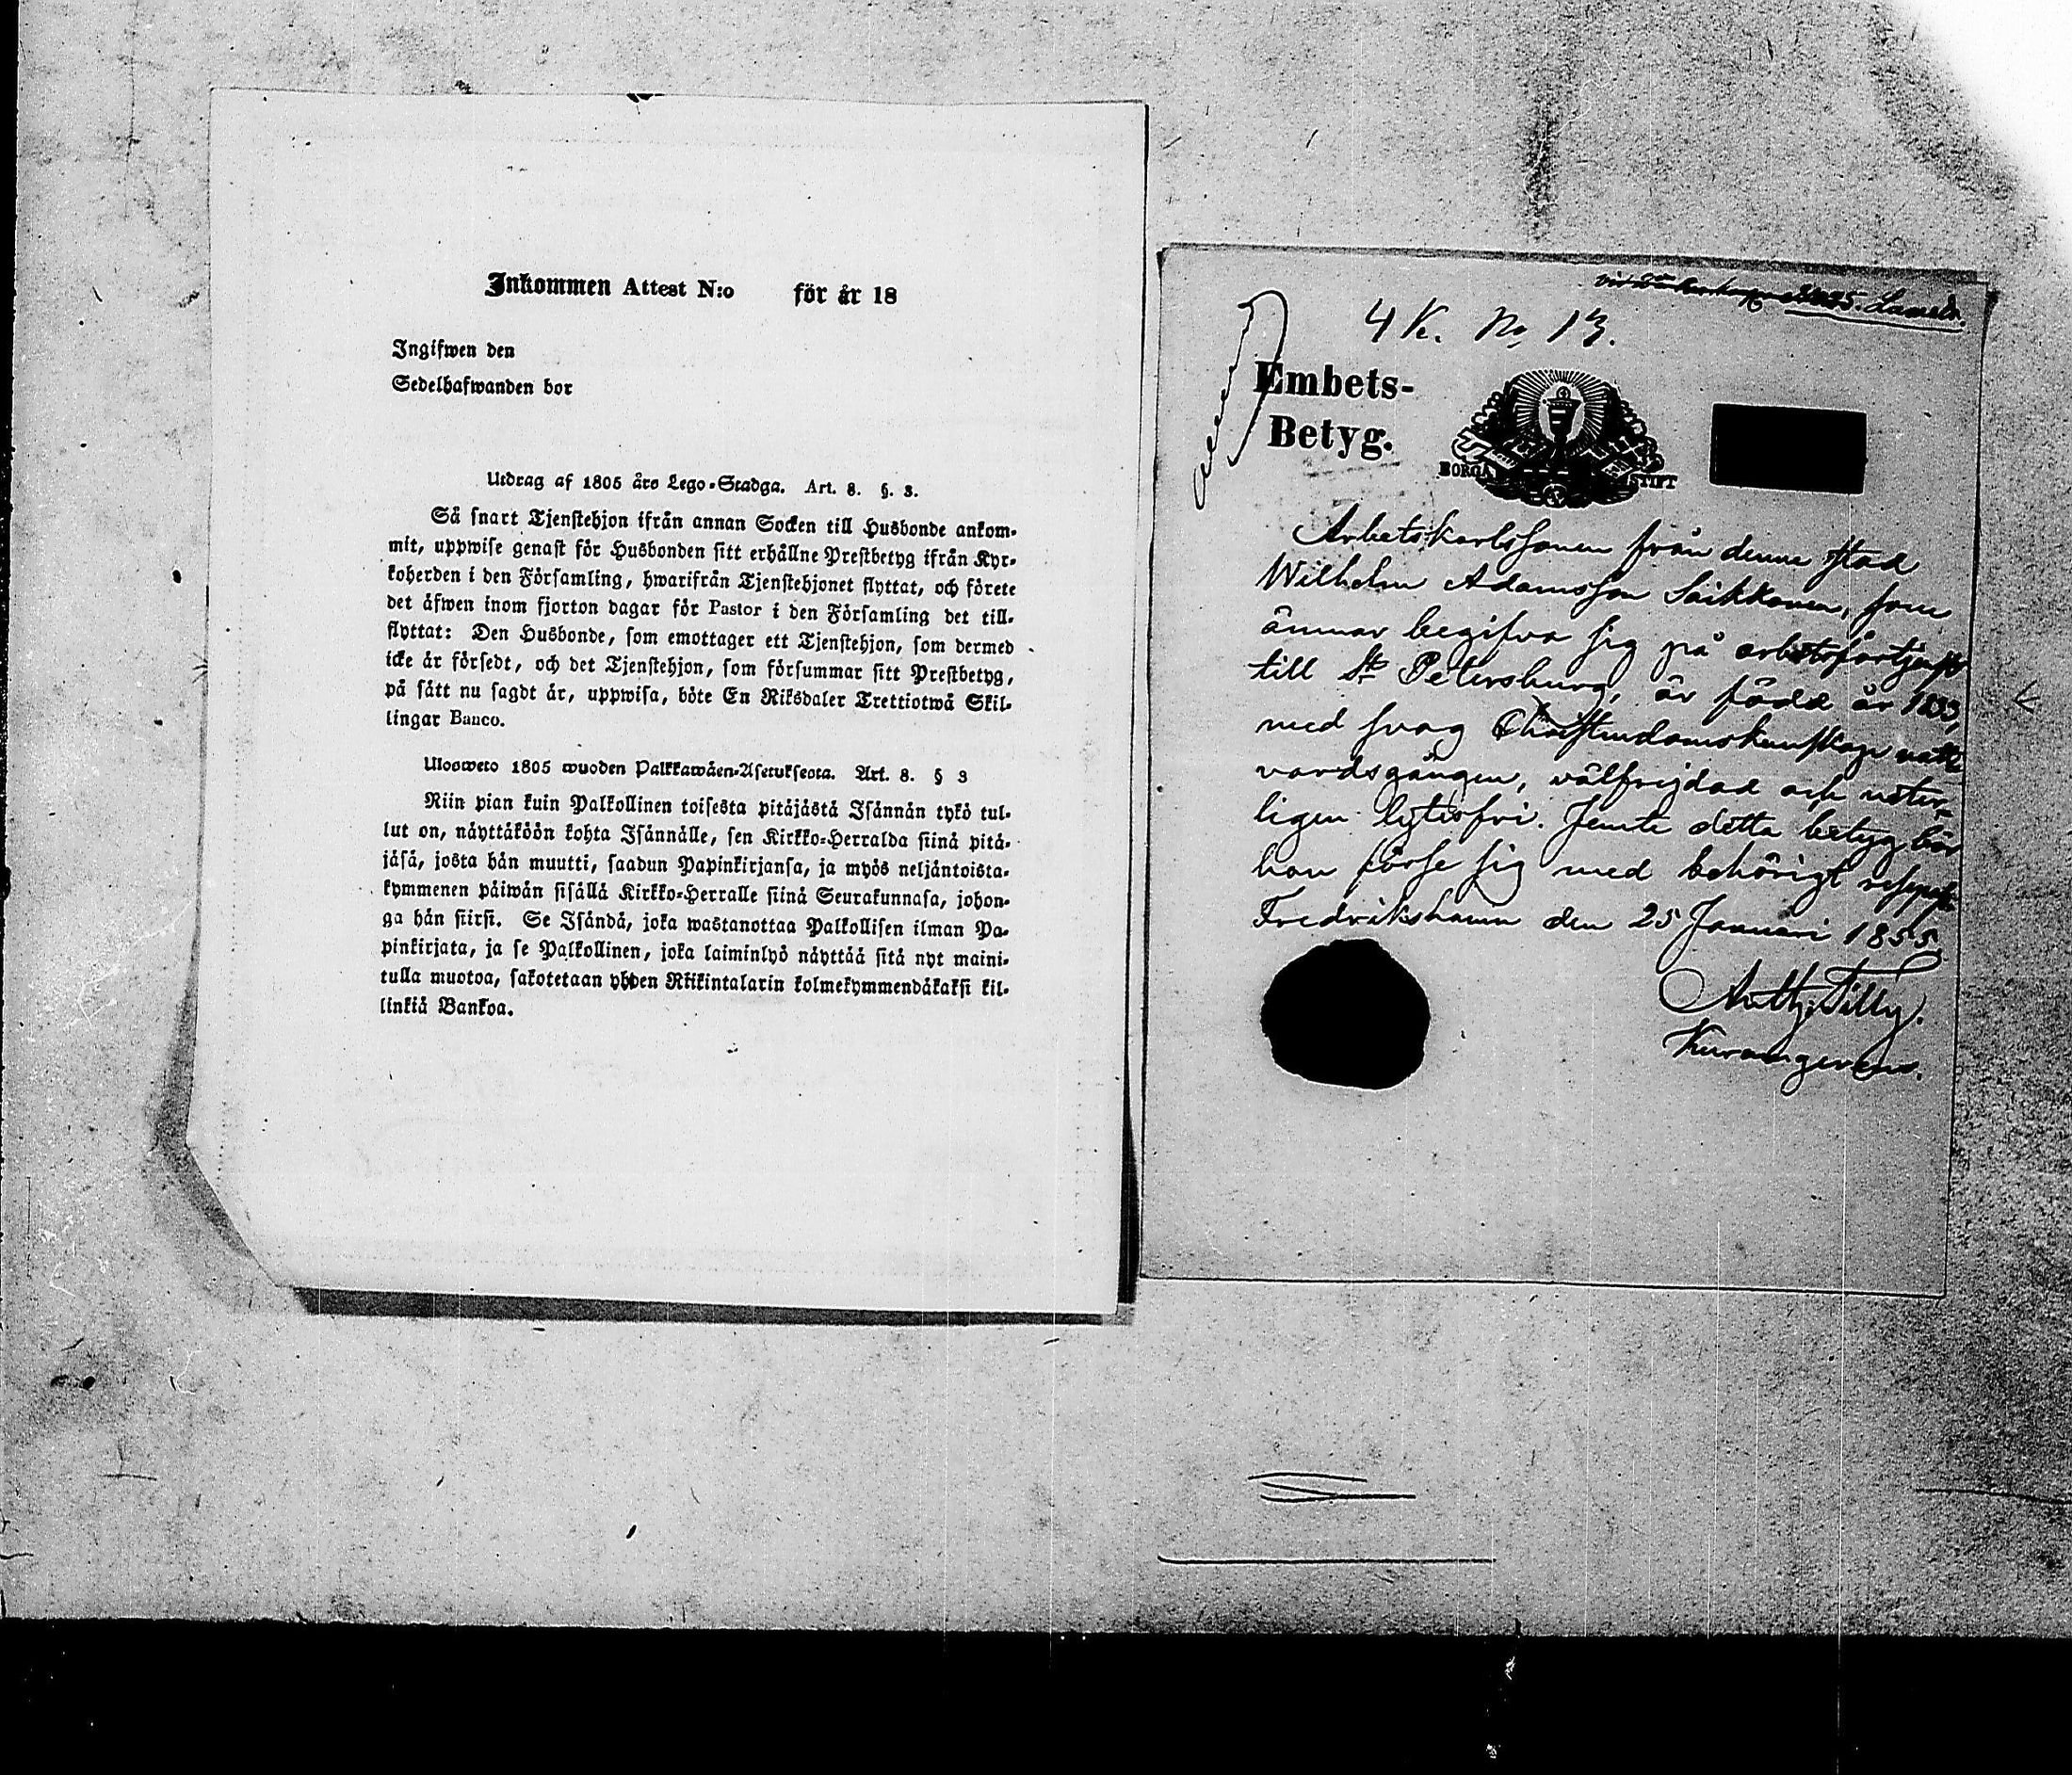 Inkommen Attest N:o för år 18
Ingifwen den
Sedelhafwanden bor
Utdrag af 1805 års Lego-Stadga. Art. 8. §. 3.
Så snart Tjenstehjon ifrån annan Socken till Husbonde ankom-
mit, uppwise genast för Husbonden sitt erhållne Prestbetyg ifrån Kyr-
koherden i den Församling, hwarifrån Tjenstehjonet flyttat, och förete
det äfwen inom fjorton dagar för Pastor i den Församling det till-
flyttat: Den Husbonde, som emottager ett Tjenstehjon, som dermed
icke är försedt, och det Tjenstehjon, som försummar sitt Prestbetyg,
på sätt nu sagdt är, uppwisa, böte En Riksdaler Trettiotwå Skil-
lingar Banco.
Ulosweto 1805 wuoden Palkkawäen-Asetuksesta. Art. 8. § 3
Niin pian kuin Palkollinen toisesta pitäjästä Isännän tykö tul-
lut on, näyttäköön kohta Isännälle, sen Kirkko-Herralda siinä pitä-
jäsä, josta hän muutti, saadun Papinkirjansa, ja myös neljäntoista-
kymmenen päiwän sisällä Kirkko-Herralle siinä Seurakunnasa, johon-
ga hän siirsi. Se Isändä, joka wastanottaa Palkollisen ilman Pa-
pinkirjata, ja se Palkollinen, joka laiminlyö näyttää sitä nyt maini-
tulla muotoa, sakotetaan yhden Riikintalarin kolmekymmendäkaksi kil-
linkiä Bankoa.
4 K. No 13.
Embets-
Betyg.
BORGÅ STIFT
Arbetskarlssonen från denne stad
Wilhelm Adamsson Saikkonen, som
ämnar begifva sig på arbetsförtjenst
till St Petersburg, är född år 1833,
med svag Christendomskunskap natt-
vardsgången, välfrejdad och veter-
ligen lytesfri. Jemte detta betyg bör
han förse sig med behörigt respass.
Fredrikshamn den 25 Januari 1855.